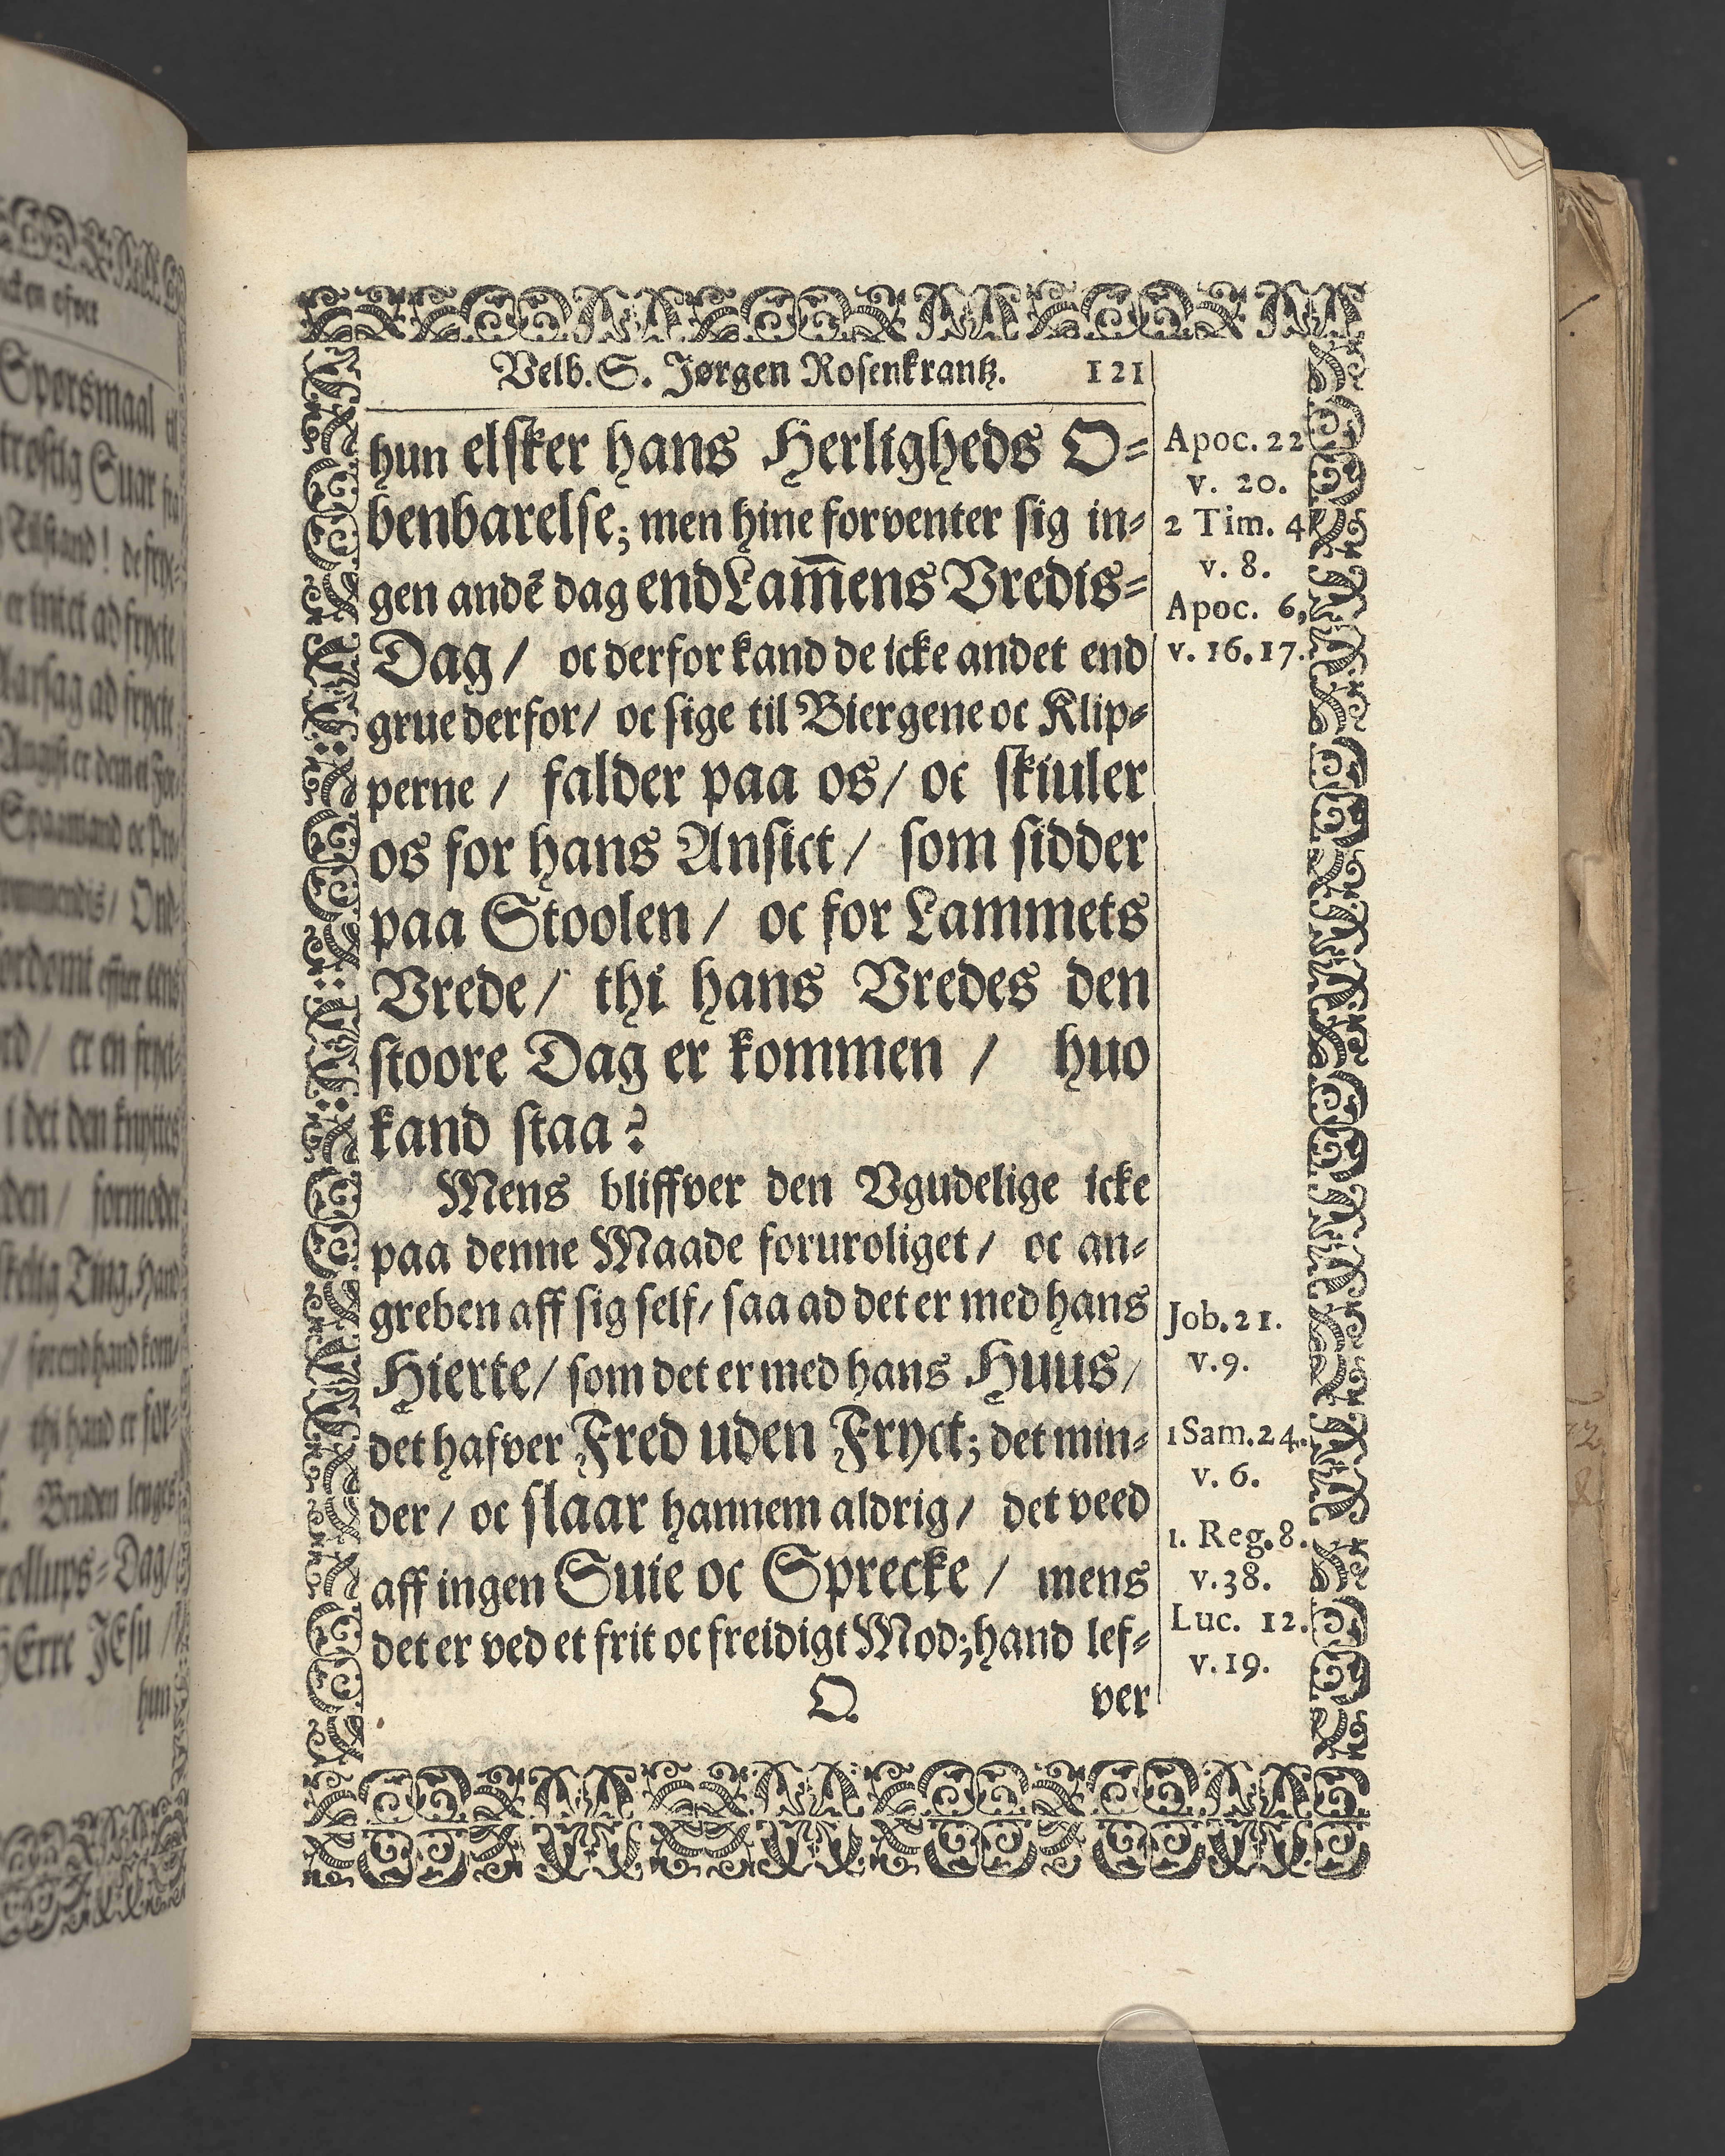 Velb. S. Jørgen Rosenkrantz. 121
hun elsker hans Herligheds O-
benbarelse; men hine forventer sig in-
gen andẽ dag end Lam̅ens Vredis-
Dag / oc derfor kand de icke andet end
grue derfor / oc sige til Biergene oc Klip-
perne / falder paa os / oc skiuler
os for hans Ansict / som sidder
paa Stoolen / oc for Lammets
Vrede / thi hans Vredes den
stoore Dag er kommen / huo
kand staa?
Mens bliffver den Vgudelige icke
paa denne Maade foruroliget / oc an-
greben aff sig self / saa ad det er med hans
Hierte / som det er med hans Huus /
det hafver Fred uden Fryct; det min-
der / oc slaar hannem aldrig / det veed
aff ingen Suie oc Sprecke / mens
det er ved et frit oc freidigt Mod; hand lef-
Q
ver
Apoc. 22
v. 20.
2 Tim. 4
v. 8.
Apoc. 6,
v. 16.17.
Job. 21.
v. 9.
1 Sam. 24.
v. 6.
1. Reg. 8.
v. 38.
Luc. 12.
v. 19.
Spørsmaal til
trøstig Suar fra
Tilstand! de fryc-
er intet ad frycte
Aarsag ad frycte
rollups-Dag /
HErre JEsu /
hun